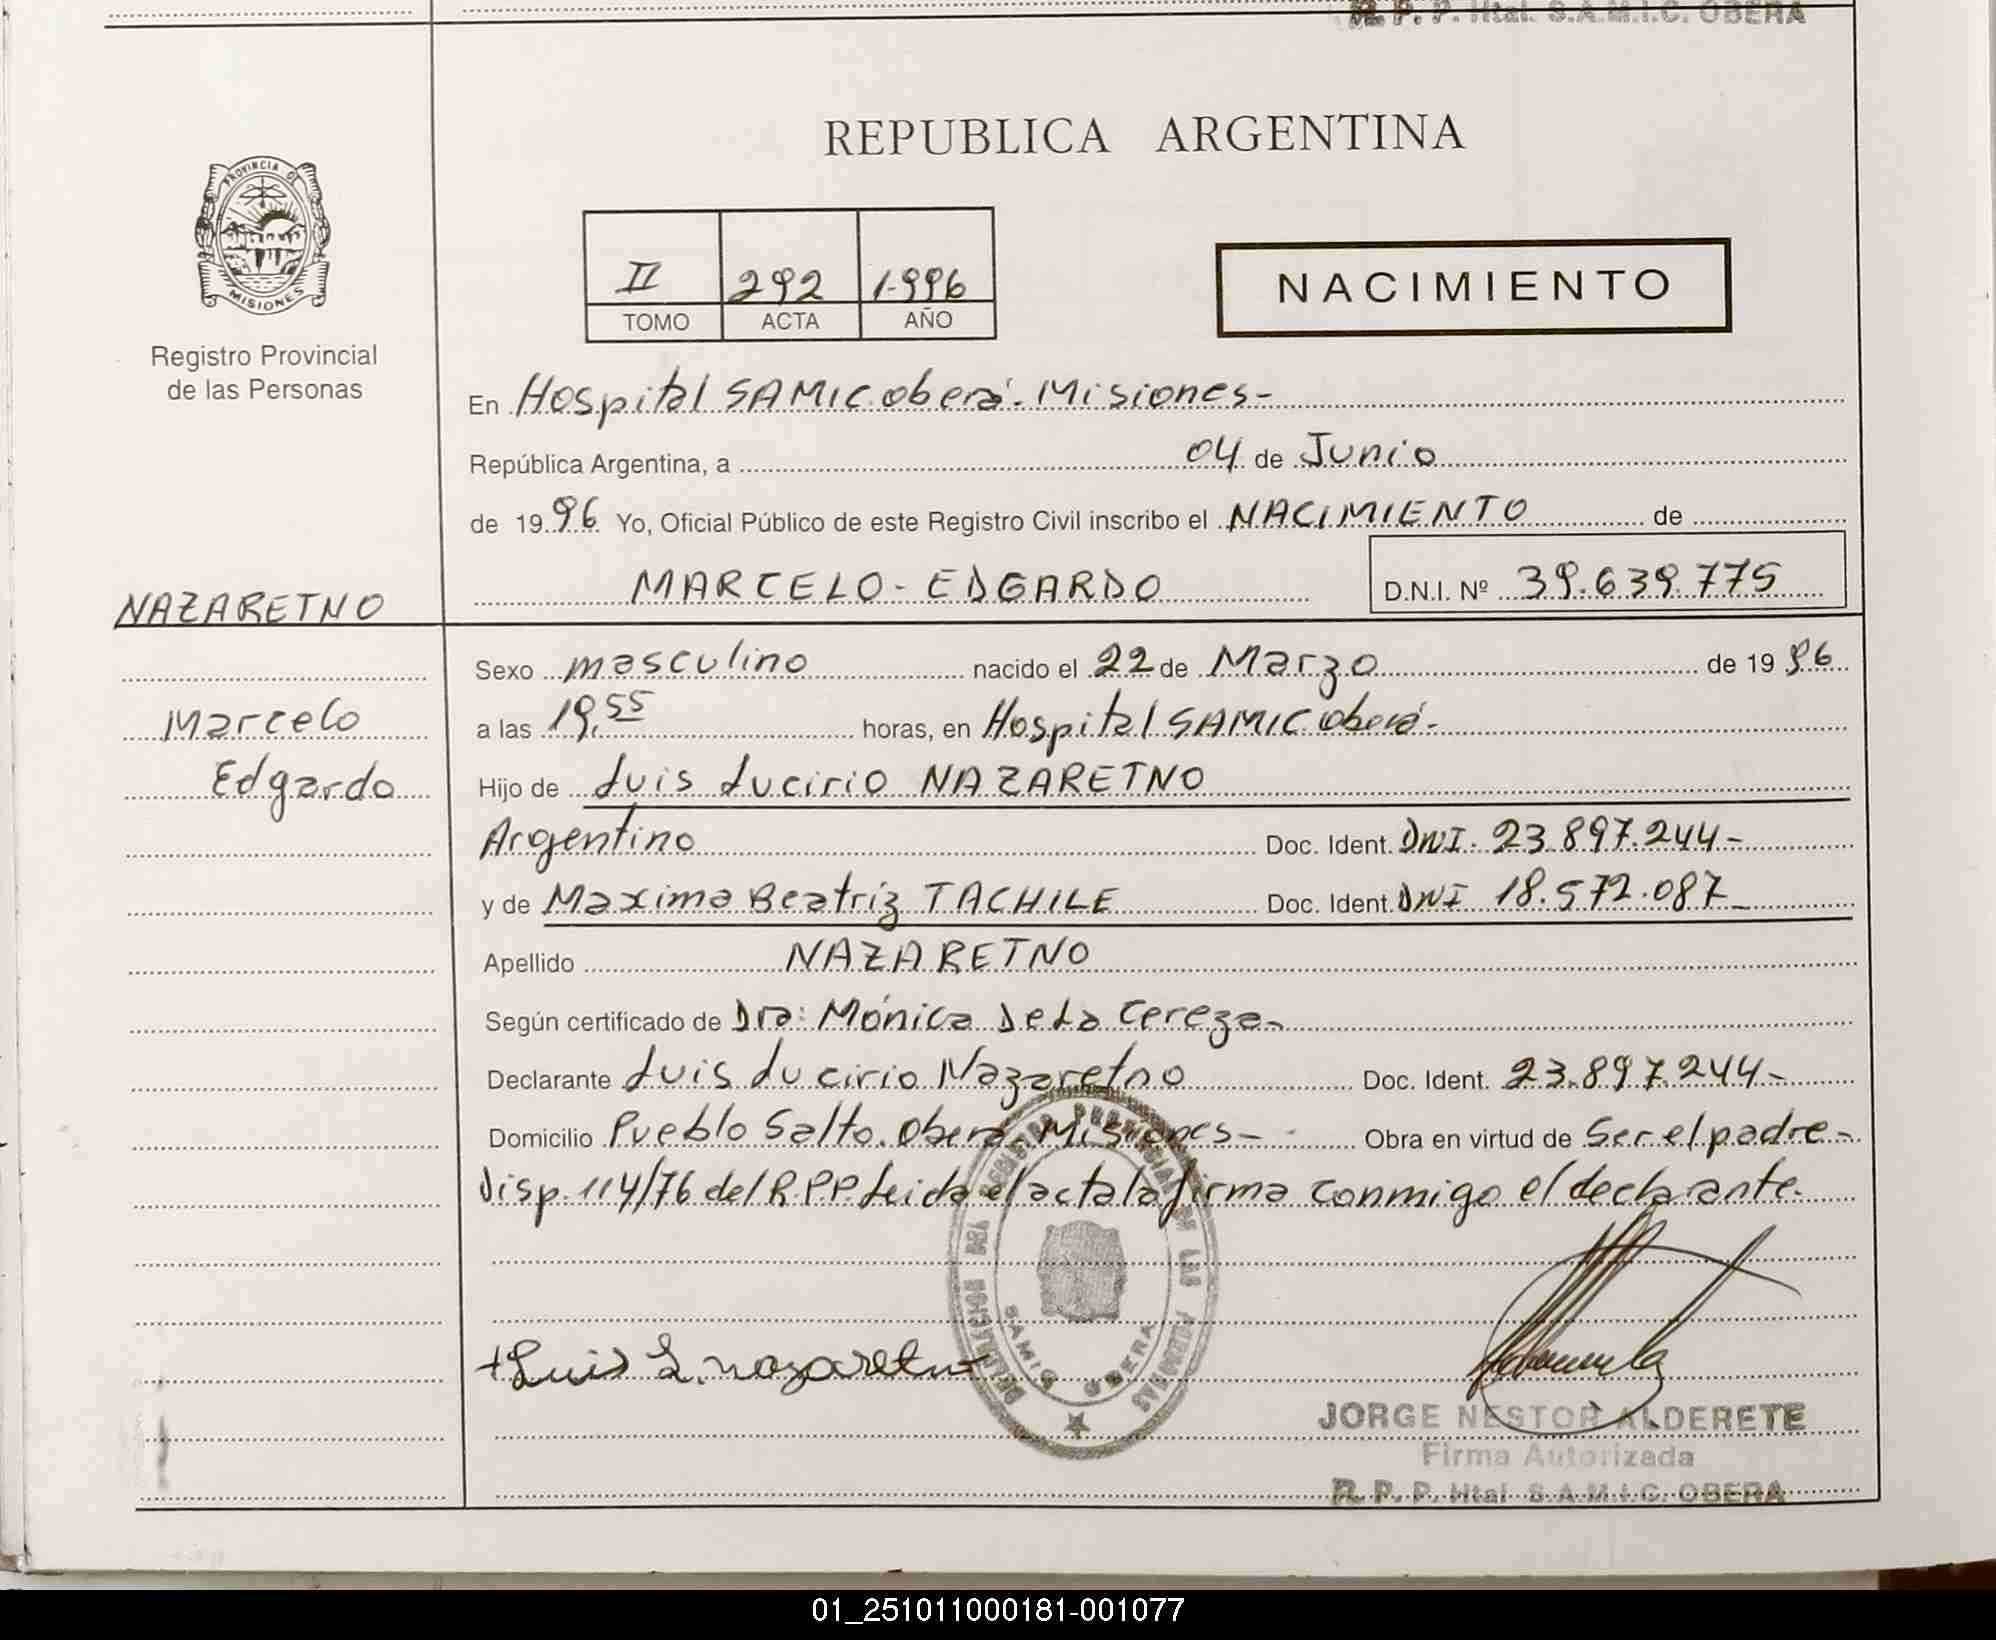 R. P. P. Htal. S.A.M.I.C. OBERA
REPUBLICA ARGENTINA
PROVINCIA DE
MISIONES
Registro Provincial
de las Personas
II 292 1.996
TOMO ACTA AÑO
NACIMIENTO
En Hospital SAMIC oberá. Misiones-
República Argentina, a 04 de Junio
de 1996 Yo, Oficial Público de este Registro Civil inscribo el NACIMIENTO de
MARCELO - EDGARDO D.N.I. Nº 39.639.775
NAZARETNO
Marcelo
Edgardo
Sexo masculino nacido el 22 de Marzo de 1996
a las 19,55 horas, en Hospital SAMIC oberá-
Hijo de Luis Lucirio NAZARETNO
Argentino Doc. Ident. DNI. 23.897.244-
y de Maxima Beatriz TACHILE Doc. Ident. DNI 18.572.087-
Apellido NAZARETNO
Según certificado de Dra: Mónica De La Cereza-
Declarante Luis Lucirio Nazaretno Doc. Ident. 23.897.244-
Domicilio Pueblo Salto. Oberá- Misiones- Obra en virtud de Ser el padre-
Disp. 114/76 del R.P.P. Leida el acta la firma conmigo el declarante.
REGISTRO PROVINCIAL DE LAS PERSONAS
DELEGACION
SAMIC OBERA
+Luis L. nazaretno
JORGE NESTOR ALDERETE
Firma Autorizada
R. P. P. Htal S.A.M.I.C. OBERA
01_251011000181-001077